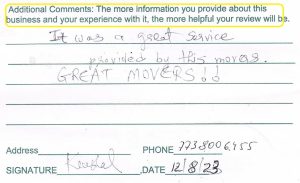 Additional Comments: The more information you provide about this
business and your experience with it, the more helpful your review will be.
It was a great service
provided by this movers.
GREAT MOVERS!!
Address
PHONE 7738006455
SIGNATURE DATE 12/8/23